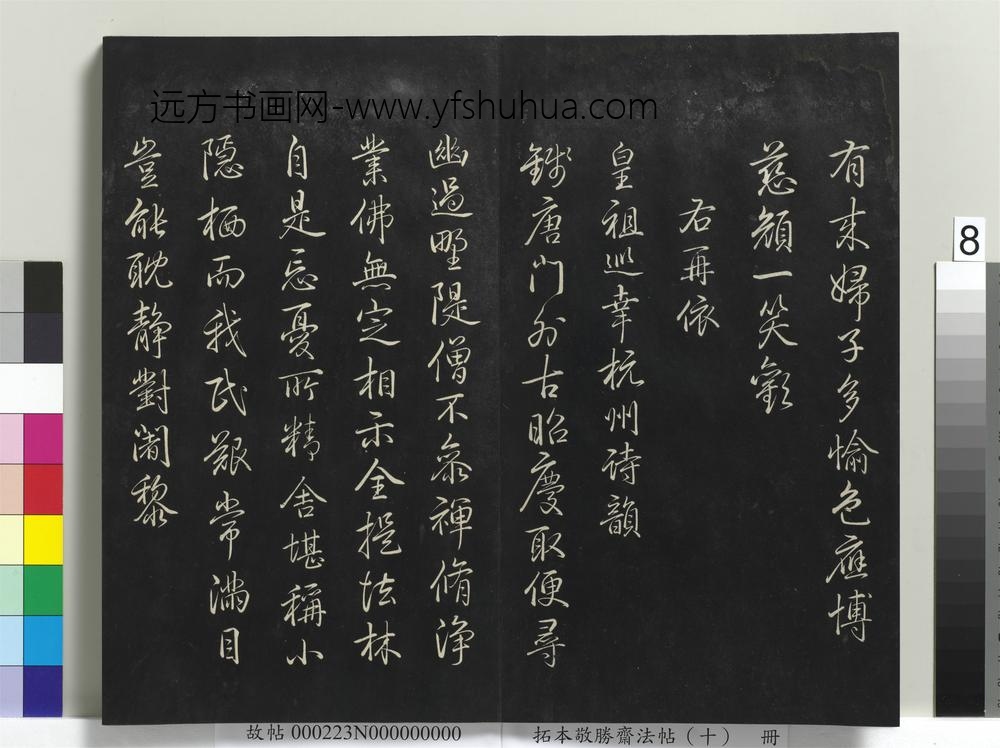 远方书画网-www.yfshuhua.com
有來婦子多愉色應博
慈顏一笑歡
右再依
皇祖巡幸杭州詩韻
錢唐門外古昭慶取便尋
幽過野隄僧不參禪脩淨
業佛無定相示全提法林
自是忘憂所精舍堪稱小
隱栖而我民艱常滿目
豈能耽静對闍黎
8
故帖 000223N000000000
拓本敬勝齋法帖（十） 冊